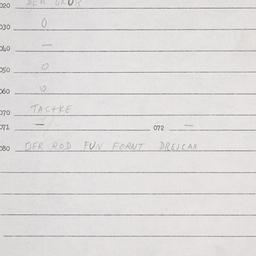 020 DER GRUB
030 0
040 —
050 0
060 0
070 TASHKE
071 — 072 —
080 DER ROD FUN FORNT DREICAN